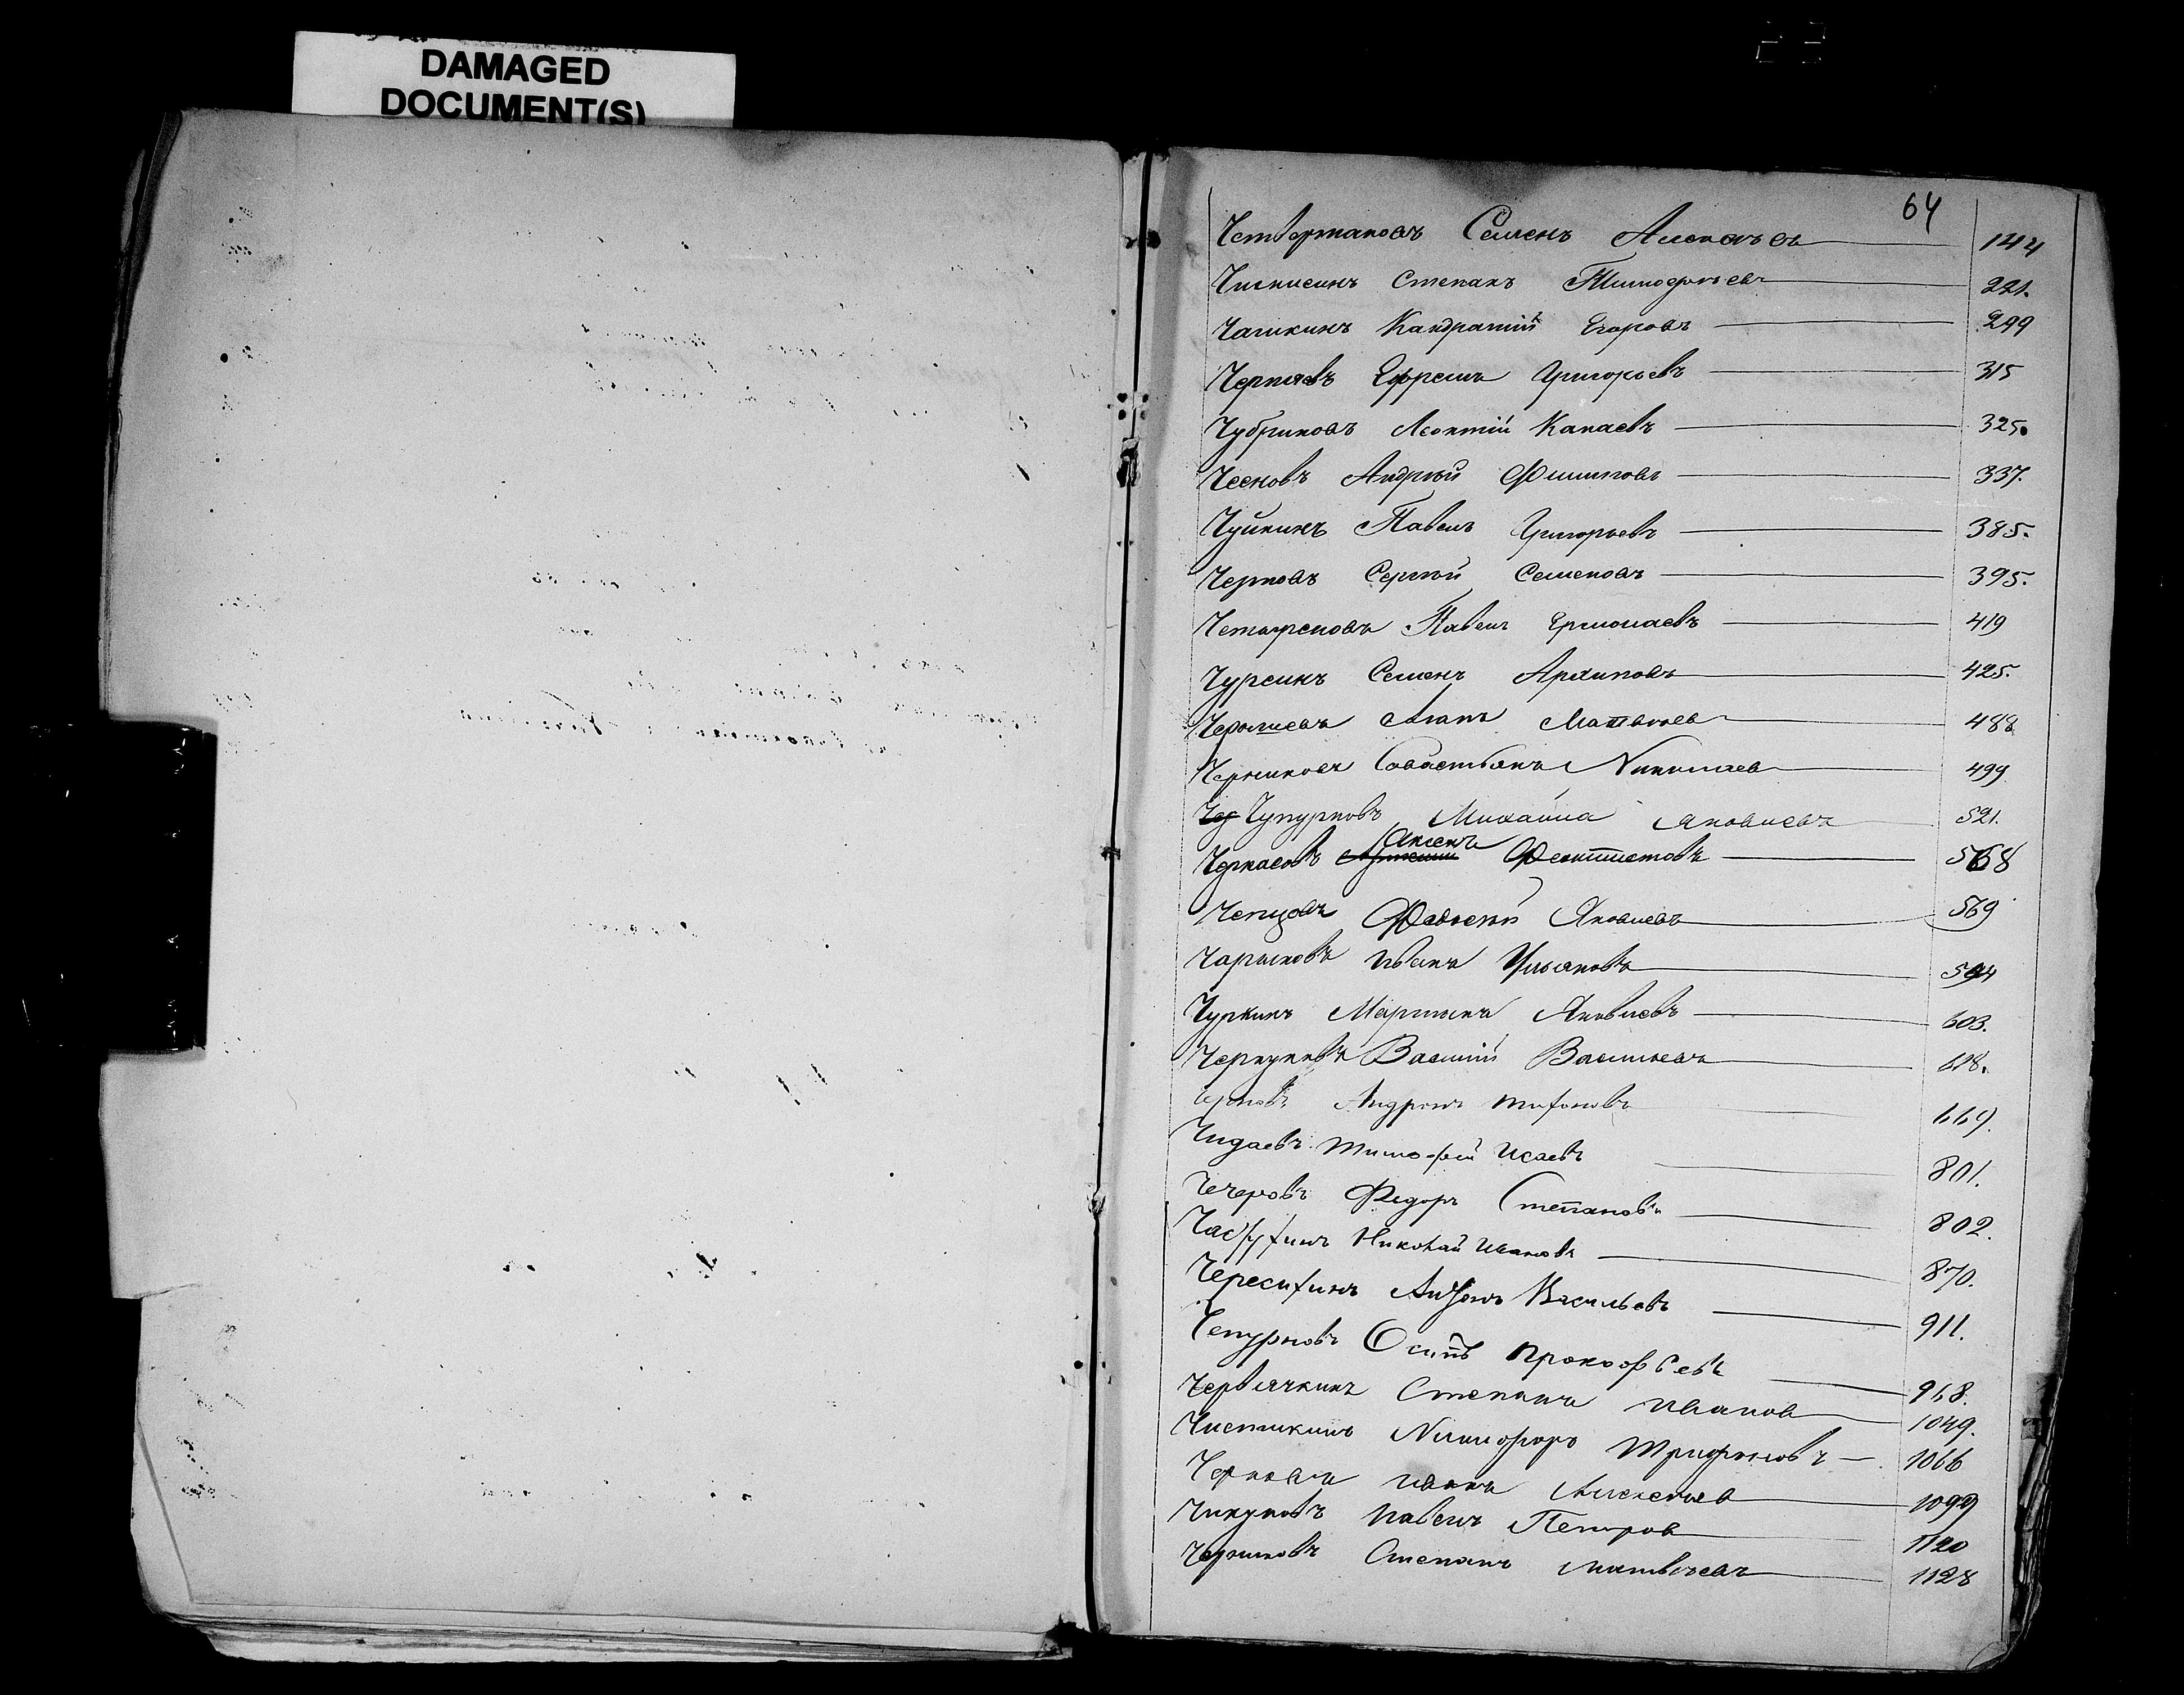 DAMAGED
DOCUMENT(S)
64
Четвертаковъ Семенъ Алексѣевъ 144
Степанъ Тимофѣевъ 221.
Чашкинъ Кандратій Егоровъ 299
Черняевъ Ефремъ Григорьевъ 315
Чубриковъ Леонтій Капаевъ 325.
Чесновъ Андрѣй Филиповъ 337.
Чуйкинъ Павелъ Григорьевъ 385.
Черновъ Сергѣй Семеновъ 395.
Павелъ Ермолаевъ 419
Чурсинъ Семенъ Архиповъ 425.
Матвѣевъ 488
Черниковъ Савастьянъ Николаев 499
Чупурновъ Михаила Яковлевъ 521.
Аксенъ
Черкасовъ Феоктистовъ 568
Чепцовъ Федосѣй Яковлевъ 569
Чарыковъ Иванъ Ульяновъ 594
Чуркинъ Мартынъ Яковлевъ 603.
Василій Васильевъ 628.
Черновъ Андронъ Тихоновъ 669.
Чидаевъ Тимофей Исаевъ 801.
Чечеровъ Федоръ Степановъ 802.
Николай Ивановъ 870.
Антонъ Васильевъ 911.
Чепурновъ Осипъ Прокофьевъ 968.
Червячкинъ Степанъ Иванов 1049.
Чистикинъ Никифоръ Трифоновъ 1066
Черновъ Иванъ Алексѣев 1099
Чикуновъ Павелъ Петров 1120
Черниковъ Степанъ Матвѣевъ 1128